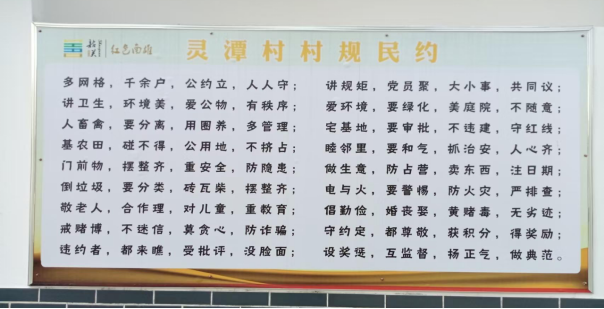 红色南雄
灵潭村村规民约
多网格，千余户，公约立，人人守；
讲卫生，环境美，爱公物，有秩序；
人畜禽，要分离，用圈养，多管理；
基农田，碰不得，公用地，不挤占；
门前物，摆整齐，重安全，防隐患；
倒垃圾，要分类，砖瓦柴，摆整齐；
敬老人，合作理，对儿童，重教育；
戒赌博，不迷信，莫贪心，防诈骗；
违约者，都来瞧，受批评，没脸面；
讲规矩，党员聚，大小事，共同议；
爱环境，要绿化，美庭院，不随意；
宅基地，要审批，不违建，守红线；
睦邻里，要和气，抓治安，人心齐；
做生意，防占营，卖东西，注日期；
电与火，要警惕，防火灾，严排查；
倡勤俭，婚丧娶，黄赌毒，无劣迹；
守约定，都尊敬，获积分，得奖励；
设奖惩，互监督，扬正气，做典范。